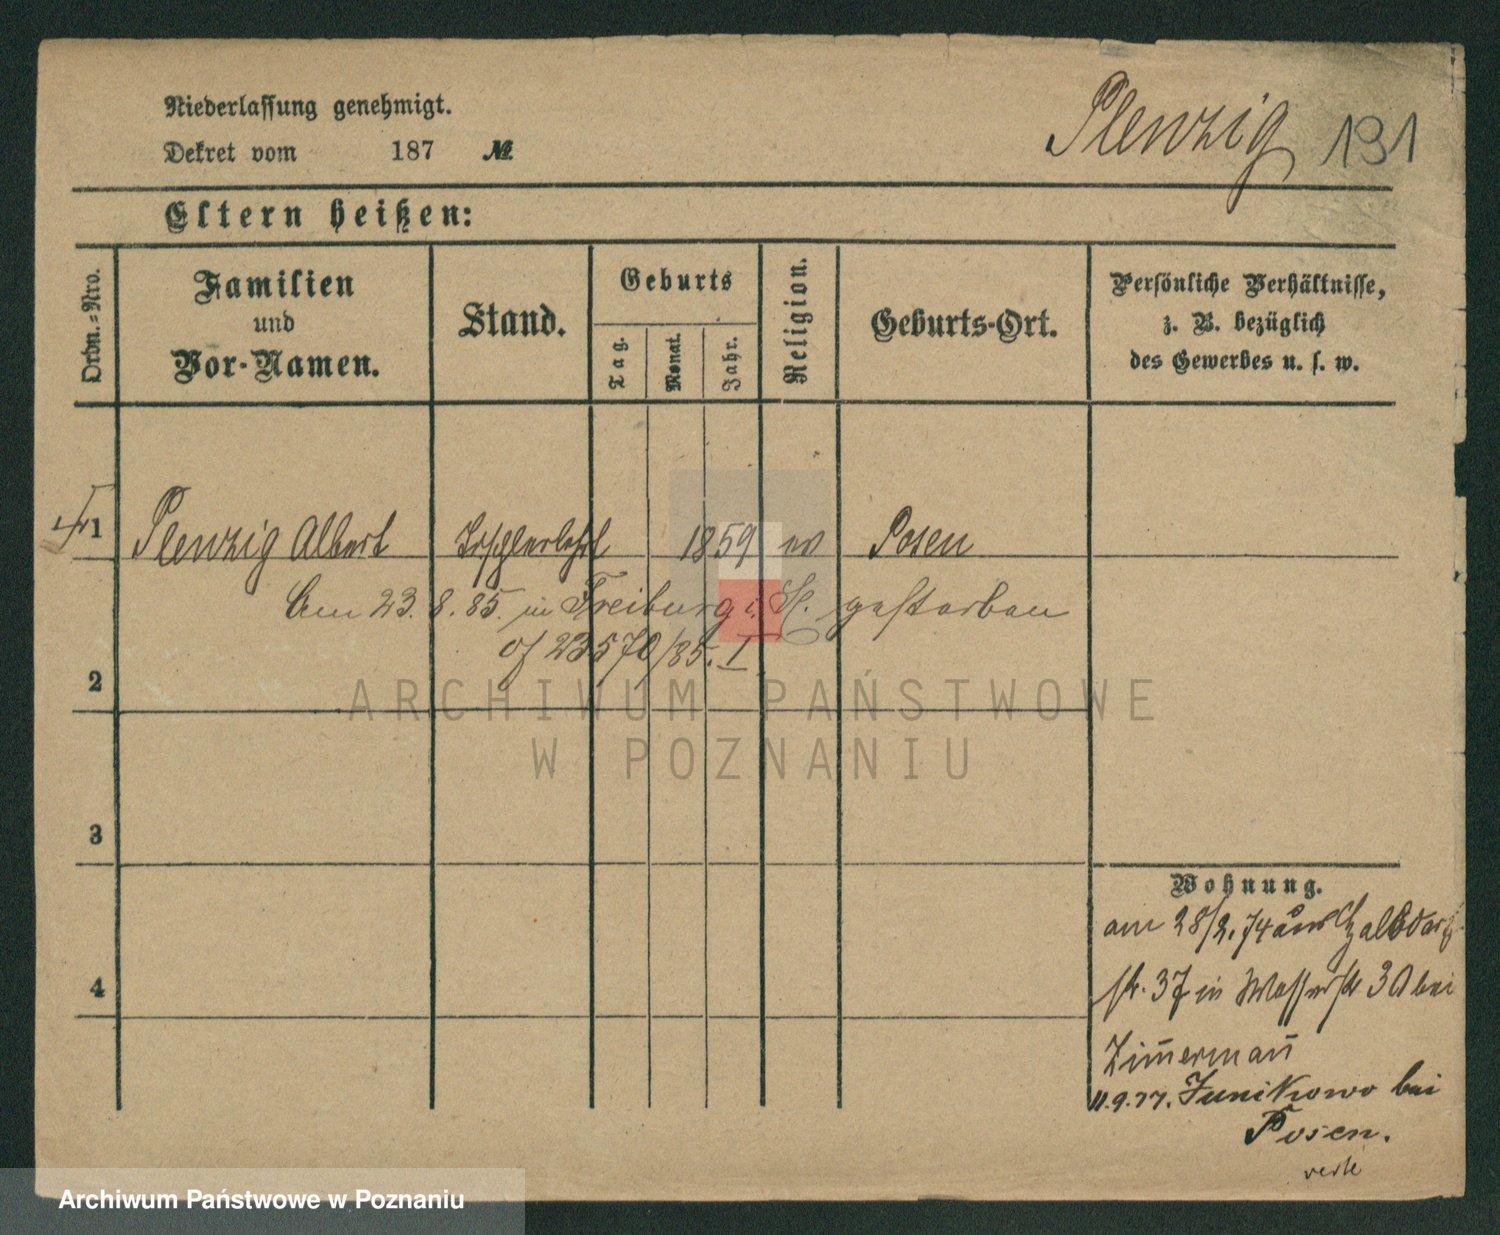 Niederlassung genehmigt.
Dekret vom 187 №
Plenzig 131
Eltern heißen:
Ordn.-Nro.
Familien
und
Vor-Namen.
Stand.
Geburts
Tag.
Monat.
Jahr.
Religion.
Geburts-Ort.
Persönliche Verhältnisse,
z. B. bezüglich
des Gewerbes u. s. w.
1 Plenzig Albert Tischlerlehrl 1859 ev Posen
Am 23.8.85. in Freiburg i. gestorben
23570/85. I
2
ARCHIWUM PAŃSTWOWE
W POZNANIU
3
Wohnung.
am 28/2.74 aus Halbdorf
str. 37 in Wasserstr 30 bei
4
Zimerman̄
11.9.77. Junikowo bei
Posen.
Archiwum Państwowe w Poznaniu